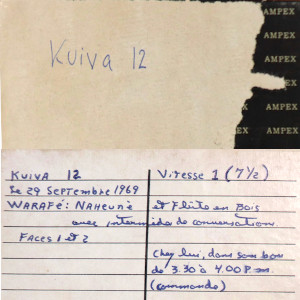 AMPEX
AMPEX
AMPEX
AMPEX
AMPEX
AMPEX
Kuiva 12
KUIVA 12
Le 29 Septembre 1969
WARAFÉ: NAHEUNÉ
avec intermède de conversation
FACES 1 et 2
Vitesse 1 (7½)
et Flûte en Bois
Chez lui, dans son
de 3.30 à 4.00 P.m
(commande)